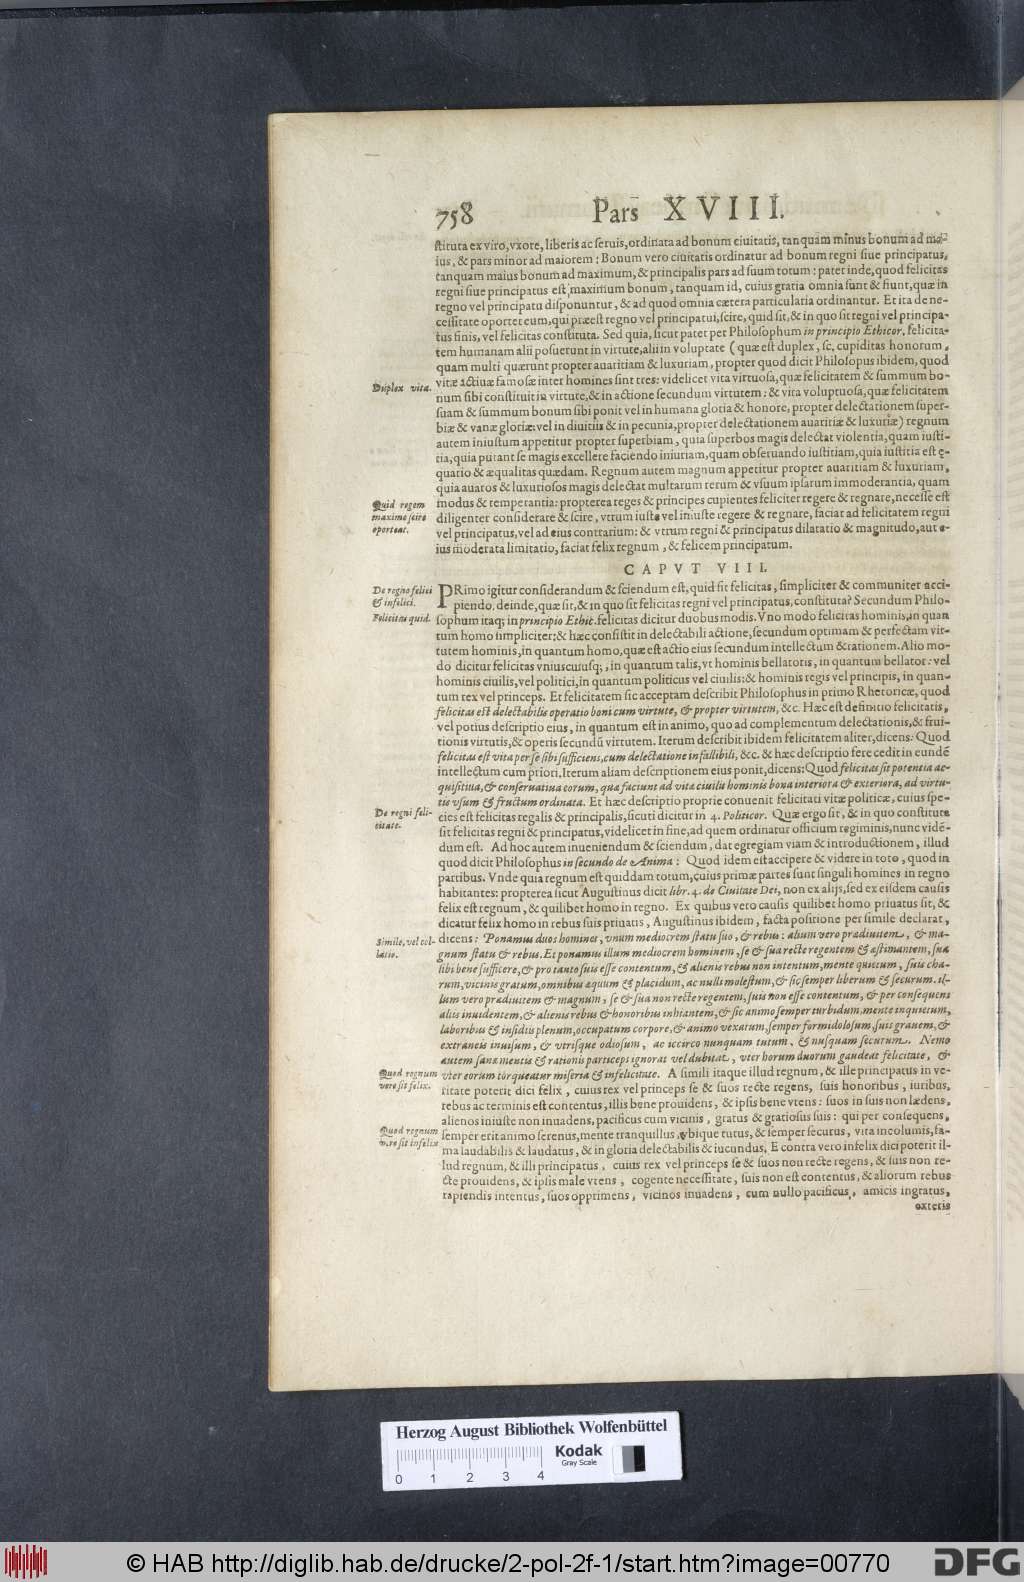 758 Pars XVIII.
stituta ex viro, vxore, liberis ac seruis, ordinata ad bonum ciuitatis, tanquam minus bonum ad ma-
ius, & pars minor ad maiorem: Bonum vero ciuitatis ordinatur ad bonum regni siue principatus,
tanquam maius bonum ad maximum, & principalis pars ad suum totum: patet inde, quod felicitas
regni siue principatus est maximum bonum, tanquam id, cuius gratia omnia sunt & fiunt, quæ in
regno vel principatu disponuntur, & ad quod omnia cætera particularia ordinantur. Et ita de ne-
cessitate oportet eum, qui præest regno vel principatui, scire, quid sit, & in quo sit regni vel principa-
tus finis, vel felicitas constituta. Sed quia, sicut patet per Philosophum in principio Ethicor. felicita-
tem humanam alii posuerunt in virtute, alii in voluptate (quæ est duplex, sc. cupiditas honorum,
quam multi quærunt propter auaritiam & luxuriam, propter quod dicit Philosopus ibidem, quod
Duplex vita. vitæ actiuæ famosæ inter homines sint tres: videlicet vita virtuosa, quæ felicitatem & summum bo-
num sibi constituit in virtute, & in actione secundum virtutem: & vita voluptuosa, quæ felicitatem
suam & summum bonum sibi ponit vel in humana gloria & honore, propter delectationem super-
biæ & vanæ gloriæ: vel in diuitiis & in pecunia, propter delectationem auaritiæ & luxuriæ) regnum
autem iniustum appetitur propter superbiam, quia superbos magis delectat violentia, quam iusti-
tia, quia putant se magis excellere faciendo iniuriam, quam obseruando iustitiam, quia iustitia est ę-
quatio & æqualitas quædam. Regnum autem magnum appetitur propter auaritiam & luxuriam,
quia auaros & luxuriosos magis delectat multarum rerum & vsuum ipsarum immoderantia, quam
Quid regem modus & temperantia: propterea reges & principes cupientes feliciter regere & regnare, necesse est
maxime scire diligenter considerare & scire, vtrum iuste vel iniuste regere & regnare, faciat ad felicitatem regni
oporteat. vel principatus, vel ad eius contrarium: & vtrum regni & principatus dilatatio & magnitudo, aut e-
ius moderata limitatio, faciat felix regnum, & felicem principatum.
CAPVT VIII.
De regno felici PRimo igitur considerandum & sciendum est, quid sit felicitas, simpliciter & communiter acci-
& infelici. piendo. deinde, quæ sit, & in quo sit felicitas regni vel principatus, constituta? Secundum Philo-
Felicitas quid. sophum itaq; in principio Ethic. felicitas dicitur duobus modis. Vno modo felicitas hominis, in quan
tum homo simpliciter: & hæc consistit in delectabili actione, secundum optimam & perfectam vir-
tutem hominis, in quantum homo, quæ est actio eius secundum intellectum & rationem. Alio mo-
do dicitur felicitas vniuscuiusq;, in quantum talis, vt hominis bellatoris, in quantum bellator: vel
hominis ciuilis, vel politici, in quantum politicus vel ciuilis: & hominis regis vel principis, in quan-
tum rex vel princeps. Et felicitatem sic acceptam describit Philosophus in primo Rhetoricæ, quod
felicitas est delectabilis operatio boni cum virtute, & propter virtutem, &c. Hæc est definitio felicitatis,
vel potius descriptio eius, in quantum est in animo, quo ad complementum delectationis, & frui-
tionis virtutis, & operis secundū virtutem. Iterum describit ibidem felicitatem aliter, dicens: Quod
felicitas est vita per se sibi sufficiens, cum delectatione infallibili, &c. & hæc descriptio fere cedit in eundē
intellectum cum priori, Iterum aliam descriptionem eius ponit, dicens: Quod felicitas sit potentia ac-
quisitiua, & conseruatiua eorum, quæ faciunt ad vitæ ciuilis hominis bona interiora & exteriora, ad virtu-
tis vsum & fructum ordinata. Et hæc descriptio proprie conuenit felicitati vitæ politicæ, cuius spe-
De regni feli- cies est felicitas regalis & principalis, sicuti dicitur in 4. Politicor. Quæ ergo sit, & in quo constituta
citate. sit felicitas regni & principatus, videlicet in fine, ad quem ordinatur officium regiminis, nunc vidē-
dum est. Ad hoc autem inueniendum & sciendum, dat egregiam viam & introductionem, illud
quod dicit Philosophus in secundo de Anima: Quod idem est accipere & videre in toto, quod in
partibus. Vnde quia regnum est quiddam totum, cuius primæ partes sunt singuli homines in regno
habitantes: propterea sicut Augustinus dicit libr. 4. de Ciuitate Dei, non ex alijs, sed ex eisdem causis
felix est regnum, & quilibet homo in regno. Ex quibus vero causis quilibet homo priuatus sit, &
dicatur felix homo in rebus suis priuatis, Augustinus ibidem, facta positione per simile declarat,
Simile, vel col- dicens: Ponamus duos homines, vnum mediocrem statu suo, & rebus: alium vero prædiuitem, & ma-
latio. gnum statu & rebus. Et ponamus illum mediocrem hominem, se & sua recte regentem & æstimantem, sua
sibi bene sufficere, & pro tanto suis esse contentum, & alienis rebus non intentum, mente quietum, suis cha-
rum, vicinis gratum, omnibus æquum & placidum, ac nulli molestum, & sic semper liberum & securum. il-
lum vero prædiuitem & magnum, se & sua non recte regentem, suis non esse contentum, & per consequens
aliis inuidentem, & alienis rebus & honoribus inhiantem, & sic animo semper turbidum, mente inquietum,
laboribus & insidiis plenum, occupatum corpore, & animo vexatum, semper formidolosum, suis grauem, &
extraneis inuisum, & vtrisque odiosum, ac iccirco nunquam tutum, & nusquam securum. Nemo
autem sanæ mentis & rationis particeps ignorat vel dubitat, vter horum duorum gaudeat felicitate, &
Quod regnum vter eorum torqueatur miseria & infelicitate. A simili itaque illud regnum, & ille principatus in ve-
vere sit felix. ritate poterit dici felix, cuius rex vel princeps se & suos recte regens, suis honoribus, iuribus,
rebus ac terminis est contentus, illis bene prouidens, & ipsis bene vtens: suos in suis non lædens,
alienos iniuste non inuadens, pacificus cum vicinis, gratus & gratiosus suis: qui per consequens,
Quod regnum semper erit animo serenus, mente tranquillus, vbique tutus, & semper securus, vita incolumis, fa-
vere sit infelix ma laudabilis & laudatus, & in gloria delectabilis & iucundus, E contra vero infelix dici poterit il-
lud regnum, & illi principatus, cuius rex vel princeps se & suos non recte regens, & suis non re-
cte prouidens, & ipsis male vtens, cogente necessitate, suis non est contentus, & aliorum rebus
rapiendis intentus, suos opprimens, vicinos inuadens, cum nullo pacificus, amicis ingratus,
exteris
Herzog August Bibliothek Wolfenbüttel
Kodak
Gray Scale
0 1 2 3 4
© HAB http://diglib.hab.de/drucke/2-pol-2f-1/start.htm?image=00770
DFG